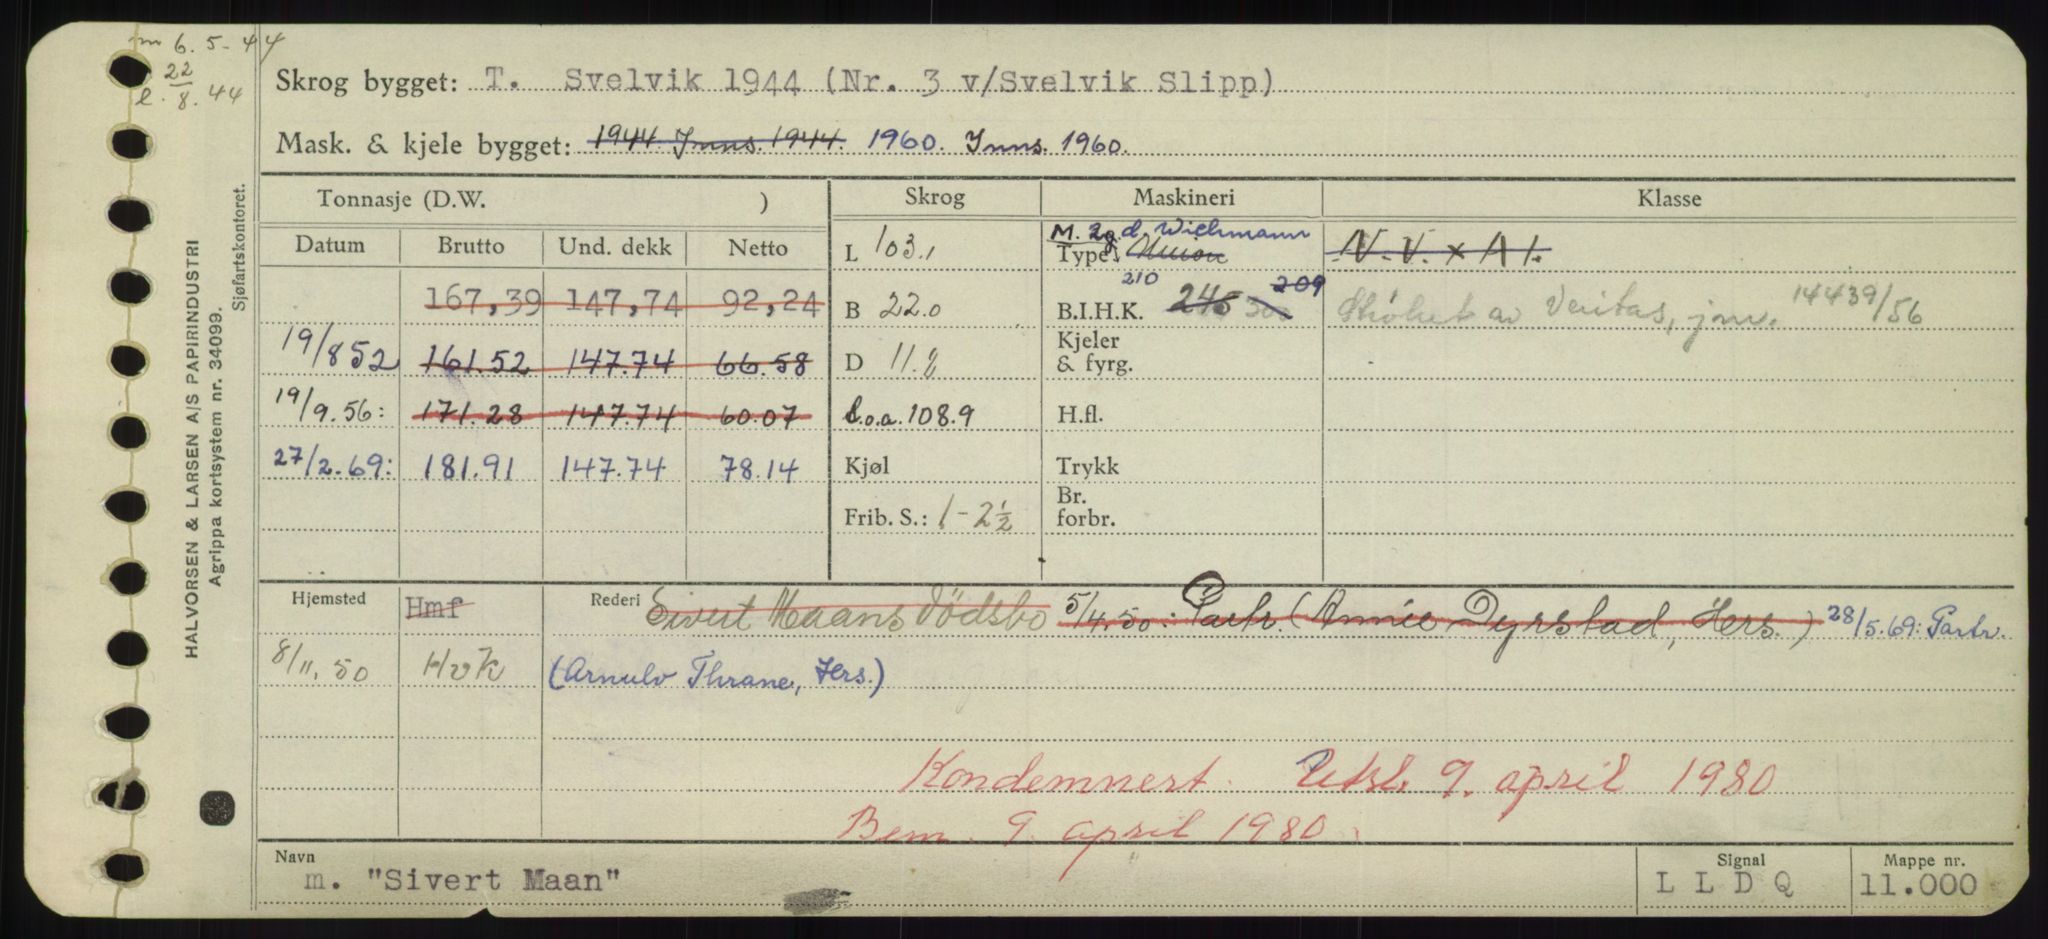 m 6. 5 - 44
e. 22/8. 44
Skrog bygget: T. Svelvik 1944 (Nr. 3 v/Svelvik Slipp)
Mask. & kjele bygget: 1944 Inns. 1944. 1960. Inns. 1960.
Tonnasje (D.W. ) Skrog Maskineri Klasse
Datum Brutto Und. dekk Netto
L 103.1 M. 2g. d. Wichmann
Type: Union N. V. × A 1.
167,39 147,74 92,24 B 22.0 B.I.H.K. 245 300 209 210 Strøket av Veritas, jnr. 14439/56
19/8 52 161.52 147.74 66.58 D 11.2 Kjeler
& fyrg.
19/9. 56: 171.28 147.74 60.07 l.o.a. 108.9 H.fl.
27/2. 69: 181.91 147.74 78.14 Kjøl Trykk
Frib. S.: 1 - 2½ Br.
forbr.
Hjemsted Hmf Rederi Sivert Maans dödsbo 5/4. 50: Partr. (Annie Dyrstad, Hers.) 28/5. 69: Partr.
8/11. 50 HvK (Arnulv Thrane, Hers.)
Kondemnert. Utsl. 9. april 1980
Bem. 9. april 1980.
Navn Signal Mappe nr.
m. "Sivert Maan" L L D Q 11.000
HALVORSEN & LARSEN A/S PAPIRINDUSTRI
Agrippa kortsystem nr. 34099.
Sjøfartskontoret.